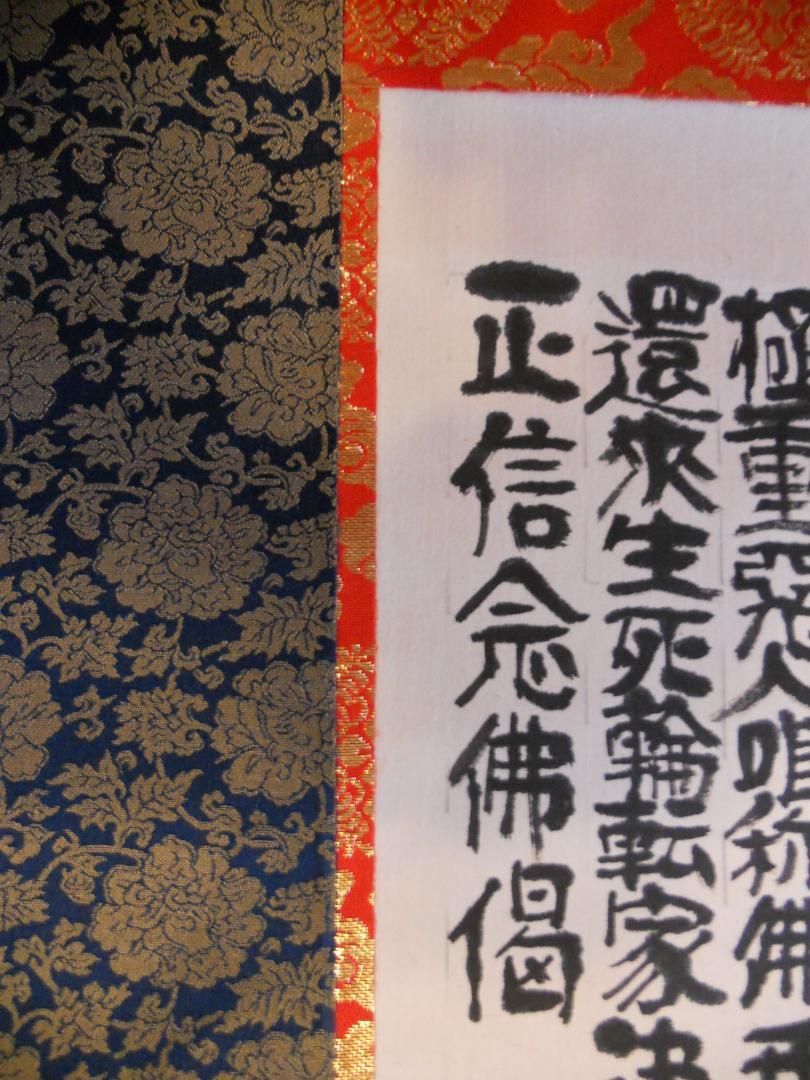 極重惡人唯称佛
還来生死輪転家決
正信念佛偈